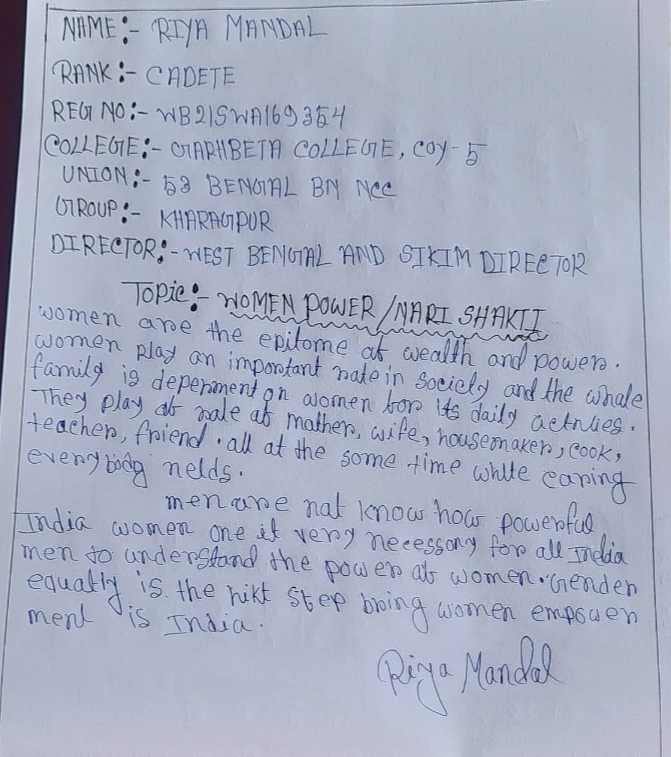 NAME:- RIYA MANDAL
RANK:- CADETE
REG NO:- WB21SWA169354
COLLEGE:- GARHBETA COLLEGE, COY-5
UNION:- 53 BENGAL BN NCC
GROUP:- KHARAGPUR
DIRECTOR:- WEST BENGAL AND SIKIM DIRECTOR
Topic:- WOMEN POWER/NARI SHAKTI
women are the epitome of wealth and power.
women play an important role in society and the whole
family is depenment on women for its daily actnies.
They play of role of mother, wife, housemaker, cook,
teacher, friend. all at the some time while caring
everybody nelds.
men are not know how powerful
India women one it very necessory for all India
men to understand the power of women. Gender
equally is the nikt step bring women empower
ment is India.
Riya Mandal